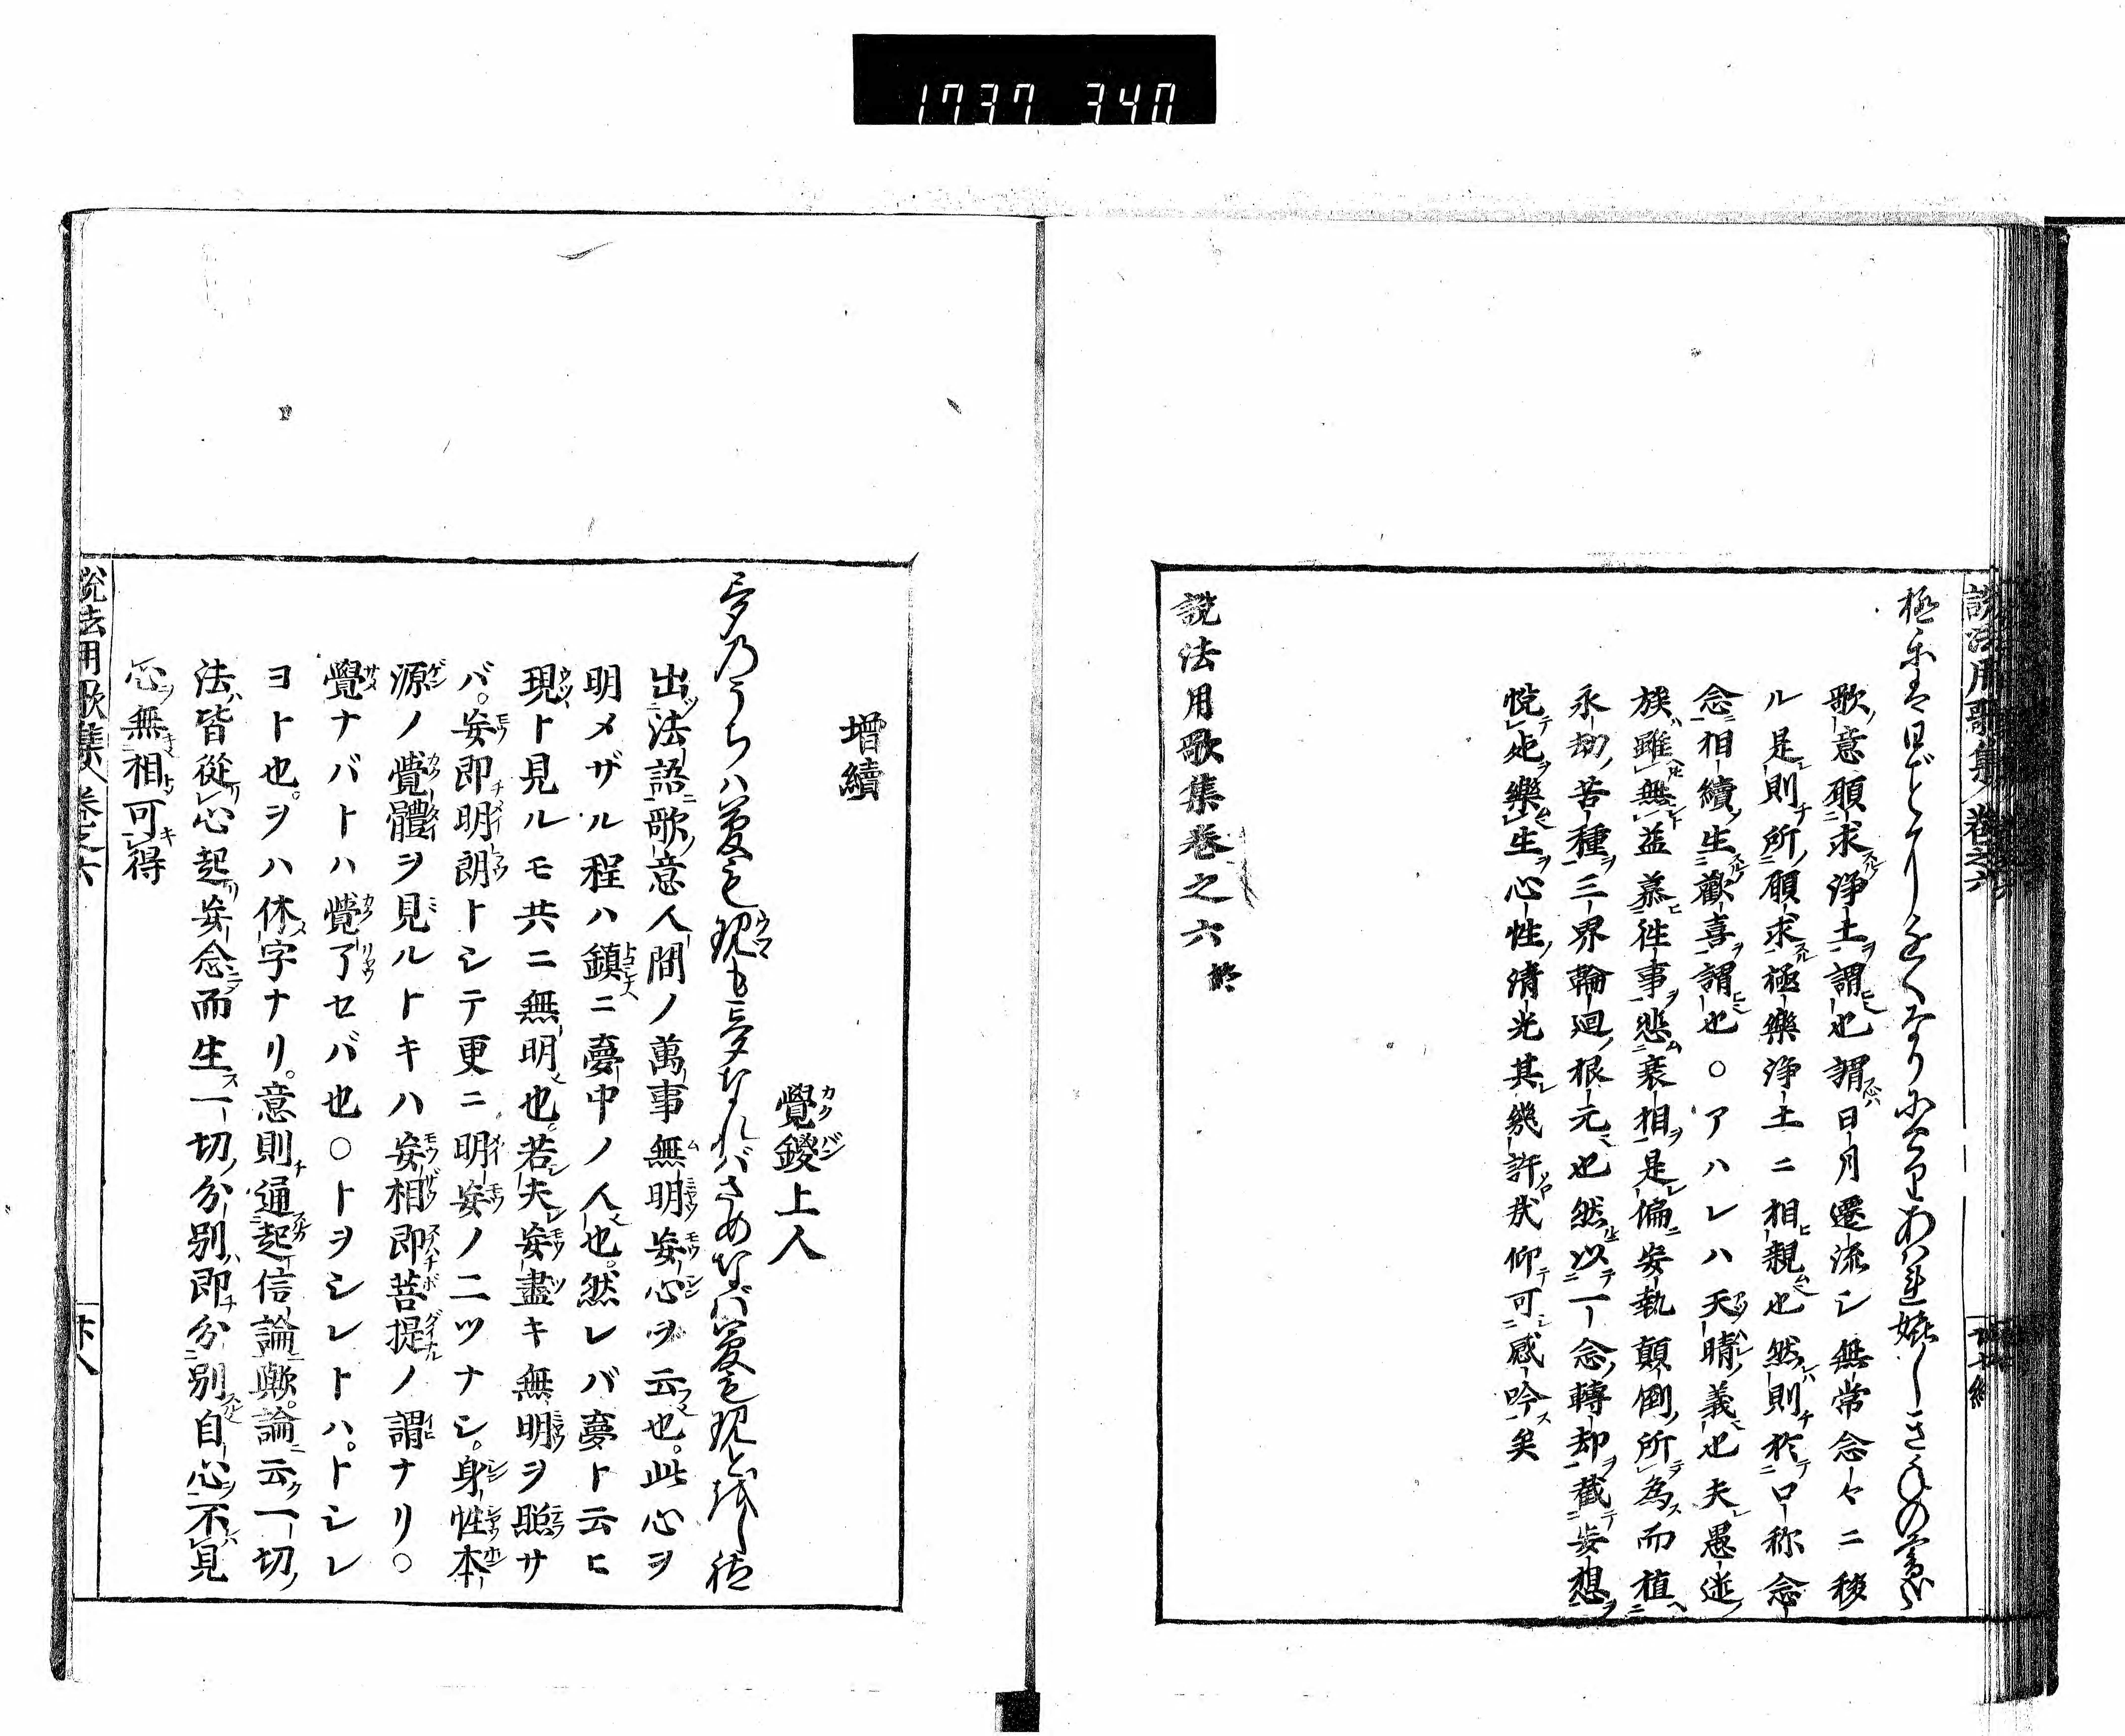 1737 340
説法用歌集 卷之六
極楽は日ごとにちかくなりにけりあはれ嬉しき老の暮かな
歌ノ意願求スル浄土ヲ謂也謂ハ日月遷流シ無常念々ニ移
ル是則チ所ノ願求スル極樂浄土ニ相ヒ親也然ハ則チ於テ口ニ称念
念相續ノ生スル歡喜ヲ謂也○アハレハ天晴ノ義也夫レ愚迷ノ
族ハ雖無益慕ヒ徃事ヲ悲ム衰相ヲ是レ偏ニ妄執顛倒ノ所為ニシテ而植ヘ
永劫ノ苦種ヲ三界輪迴ノ根元也然以テ一念ノ轉却ヲ截テ妄想ヲ
悦テ死ヲ樂生ヲ心性ノ清光其レ幾許哉仰テ可シ感吟ス矣
説法用歌集卷之六終
增續
覺鑁上人
夢のうちは夢も現も夢なればさめなば夢も現とをしれ
出ツ法語ニ歌ノ意人間ノ萬事無明妄心ヲ云也。此心ヲ
明メザル程ハ鎮ニ夢中ノ人也。然レバ夢ト云ヒ
現ト見ルモ共ニ無明也。若シ夫レ妄盡キ無明ヲ照サ
バ。妄即チ明朗トシテ更ニ明妄ノ二ツナシ。身性本
源ノ覺體ヲ見ルトキハ妄相即菩提ノ謂ナリ。○
覺ナバトハ覺了セバ也○トヲシレトハ。トシレ
ヨト也。ヲハ休字ナリ。意則チ通起信論歟。論ニ云ク一切ノ
法ハ皆從リ心起リ妄念ニシテ而生ス一切ノ分別ハ即チ分別スルヲ自心ヲ不レバ見
心ヲ無相可キ得
説法用歌集 卷之六